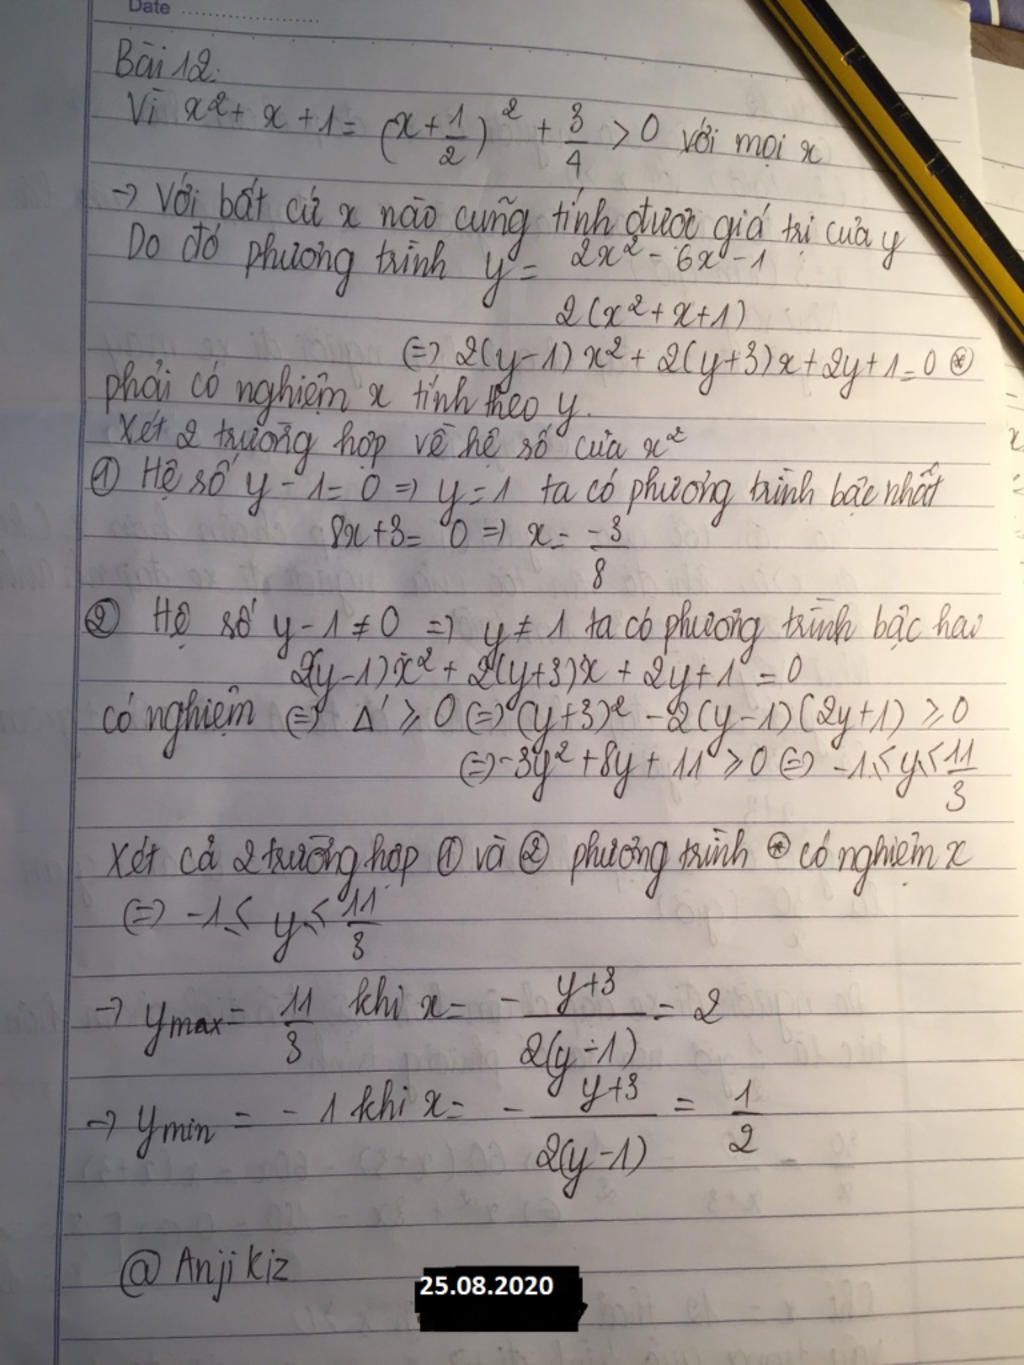 Date
Bài 12:
Vì x² + x + 1 = (x + 1/2)² + 3/4 > 0 với mọi x
→ Với bất cứ x nào cũng tính được giá trị của y
Do đó phương trình y = (2x² - 6x - 1)/(2(x² + x + 1))
(=) 2(y-1)x² + 2(y+3)x + 2y + 1 = 0 ⊛
phải có nghiệm x tính theo y.
Xét 2 trường hợp về hệ số của x²
① Hệ số y - 1 = 0 => y = 1 ta có phương trình bậc nhất
8x + 3 = 0 => x = -3/8
② Hệ số y - 1 ≠ 0 => y ≠ 1 ta có phương trình bậc hai
2(y-1)x² + 2(y+3)x + 2y + 1 = 0
có nghiệm (=) Δ' ≥ 0 (=) (y+3)² - 2(y-1)(2y+1) ≥ 0
(=) -3y² + 8y + 11 ≥ 0 (=) -1 ≤ y ≤ 11/3
Xét cả 2 trường hợp ① và ② phương trình ⊛ có nghiệm x
(=) -1 ≤ y ≤ 11/3
→ ymax = 11/3 khi x = - (y+3)/(2(y-1)) = 2
→ ymin = -1 khi x = - (y+3)/(2(y-1)) = 1/2
@ Anji kiz
25.08.2020